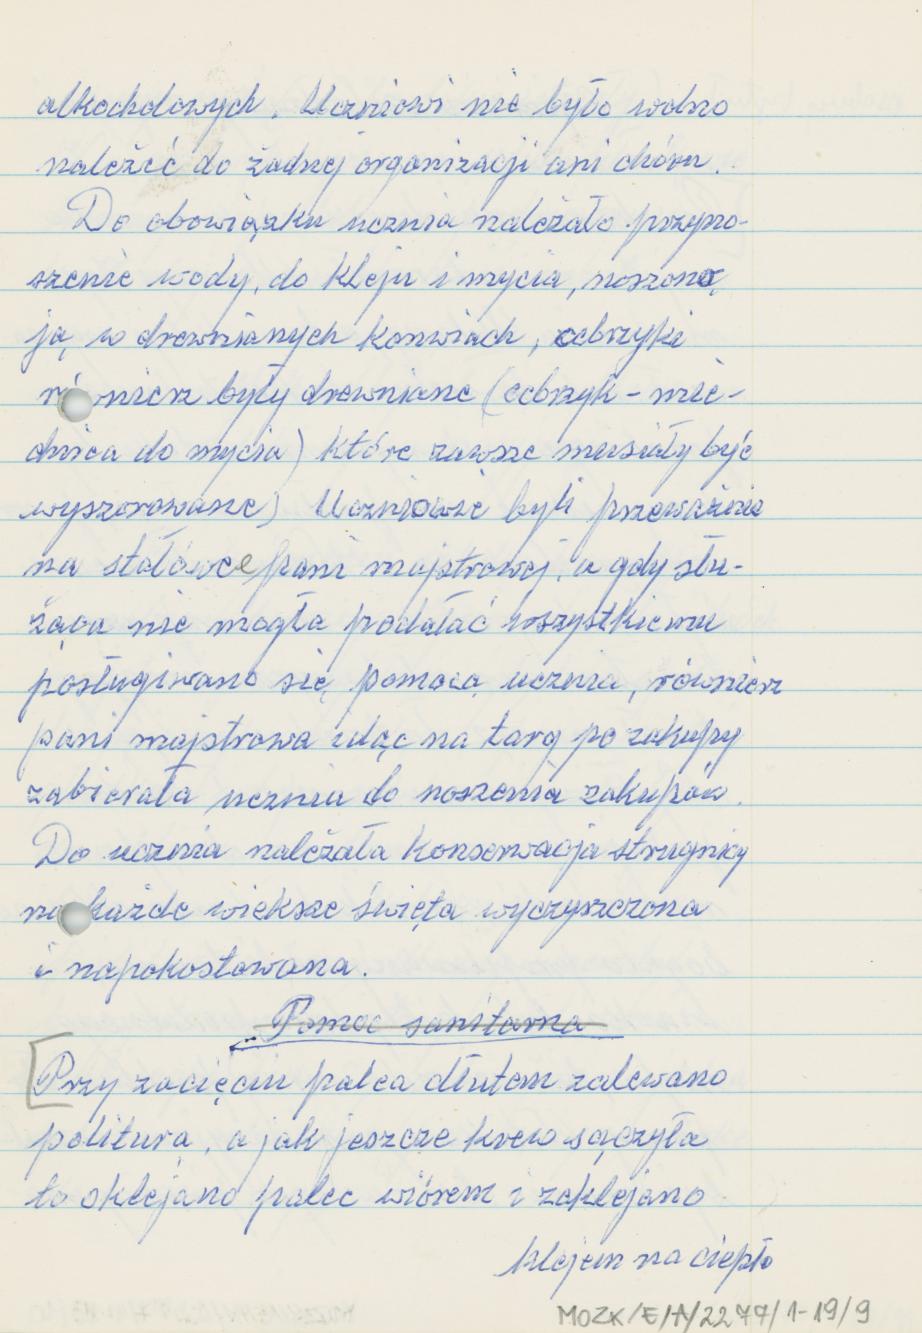 alkocholowych. Uczniowi nie było wolno
należeć do żadnej organizacji ani chóru.
Do obowiązku ucznia należało przyno-
szenie wody, do kleju i mycia, noszono
ją, w drewnianych konwiach, cebrzyki
również były drewniane (cebrzyk - mie-
dnica do mycia) które zawsze musiały być
wyszorowane) Uczniowie byli przeważnie
na stołówce pani majstrowej, a gdy słu-
żąca nie mogła podołać wszystkiemu
posługiwano się pomocą ucznia, równierz
pani majstrowa idąc na targ po zakupy
zabierała ucznia do noszenia zakupów.
Do ucznia należała konserwacja strugnicy
na każde wieksze święta wyczyszczona
i napokostowana.
Pomoc sanitarna
Przy zacięciu palca dłutem zalewano
politurą, a jak jeszcze krew sączyła
to oklejano palec wiórem i zaklejano
klejem na ciepło
MOZK/E/A/2277/1-19/9